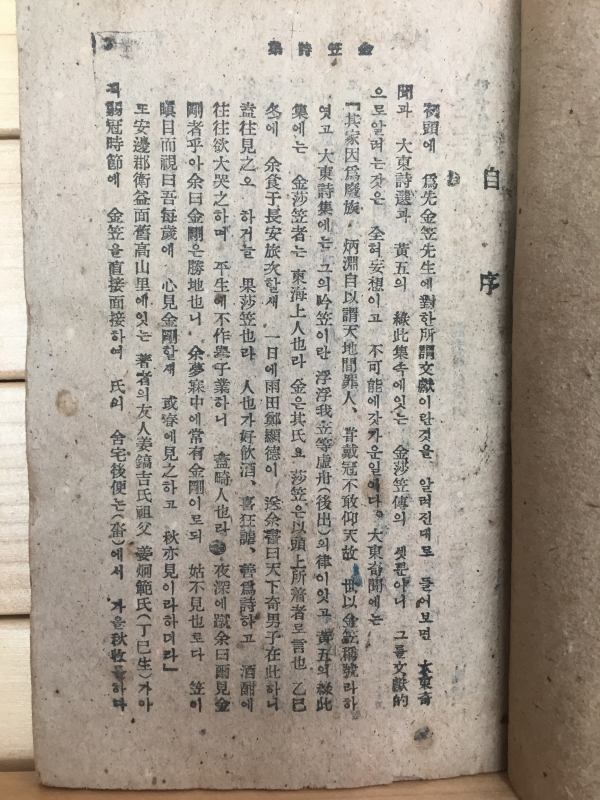 金笠詩集
自序
初頭에 爲先金笠先生에對한所謂文獻이란것을 알려진대로 들어보면 大東奇
聞과 大東詩選과 黃五의 綠此集속에잇는 金莎笠傳의 셋뿐아니 그를文獻的
으로알려는것은 全혀妄想이고 不可能에갓가운일이다 大東奇聞에는
「其家因爲廢族 炳淵自以謂天地間罪人、甞戴冠不敢仰天故 世以金笠稱號라하
엿고 大東詩集에는 그의吟笠이란 浮浮我笠等虛舟(後出)의律이잇고 黃五의綠此
集에는 金莎笠者는 東海上人也라 金은其氏요 莎笠은以頭上所着者로言也 乙巳
冬에 余食于長安旅次할새 一日에雨田鄭顯德이 送余書曰天下奇男子在此하니
盍往見之오 하거늘 果莎笠也라 人也가好飮酒、喜狂謔、善爲詩하고 酒酣에
往往欲大哭之하며 平生에不作擧子業하니 盖畸人也라 夜深에蹴余曰爾見金
剛者乎아 余曰金剛은勝地也니 余夢寐中에常有金剛이로되 姑不見也로다 笠이
瞋目而視曰吾每歲에 心見金剛할새 或春에見之하고 秋亦見이라하더라」
또安邊郡衛益面舊高山里에잇는 著者의友人姜鎬吉氏祖父 姜炯範氏(丁巳生)가아
즉弱冠時節에 金笠을直接面接하여 氏의 舍宅後便논(畓)에서 가을秋收를하다